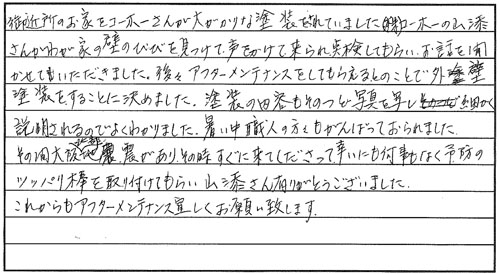 御近所のお家をコーホーさんが大がかりな塗装をされていました(株)コーホーの山添
さんがわが家の壁のひびを見つけて声をかけて来られ点検してもらい、お話を聞
かせてもいただきました。後々アフターメンテナンスをしてもらえるとのことで外壁
塗装をすることに決めました。塗装の内容もそのつど写真を写し 細かく
説明されるのでよくわかりました。暑い中職人の方もがんばっておられました。
その間大阪北部地震があり、その時すぐに来てくださって幸いにも何事もなく予防の
ツッパリ棒を取り付けてもらい山添さん有りがとうございました。
これからもアフターメンテナンス宜しくお願い致します。